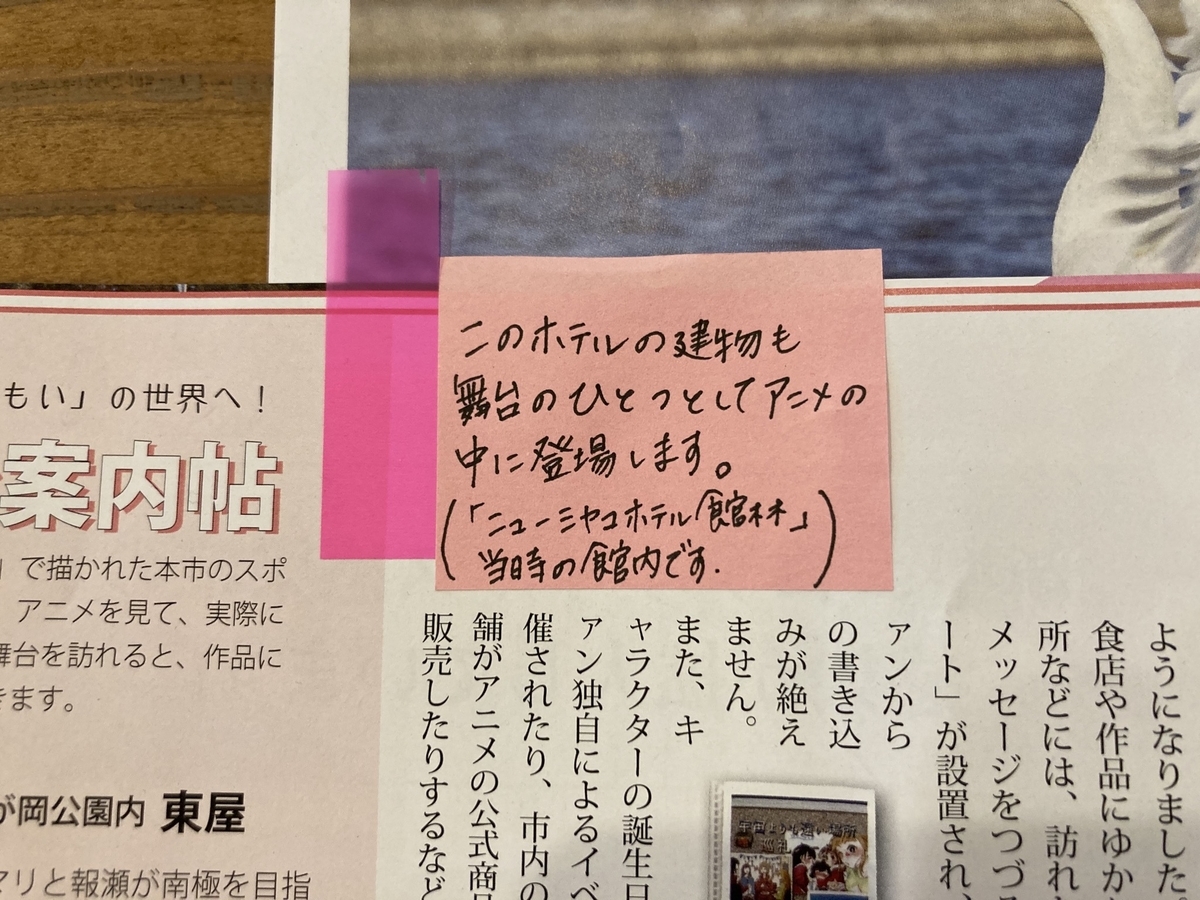 このホテルの建物も
舞台のひとつとしてアニメの
中に登場します。
(「ニューミヤコホテル館林」
当時の館内です.)
もい」の世界へ!
案内帖
」で描かれた本市のスポ
アニメを見て、実際に
舞台を訪れると、作品に
きます。
が岡公園内 東屋
マリと報瀬が南極を目指
ようになりました。
食店や作品にゆか
所などには、訪れ
メッセージをつづる
ート」が設置され、
ァンから
の書き込
みが絶え
ません。
また、キ
ャラクターの誕生日
ァン独自によるイベ
催されたり、市内の
舗がアニメの公式商品
販売したりするなど
宇宙よりも遠い場所
巡礼